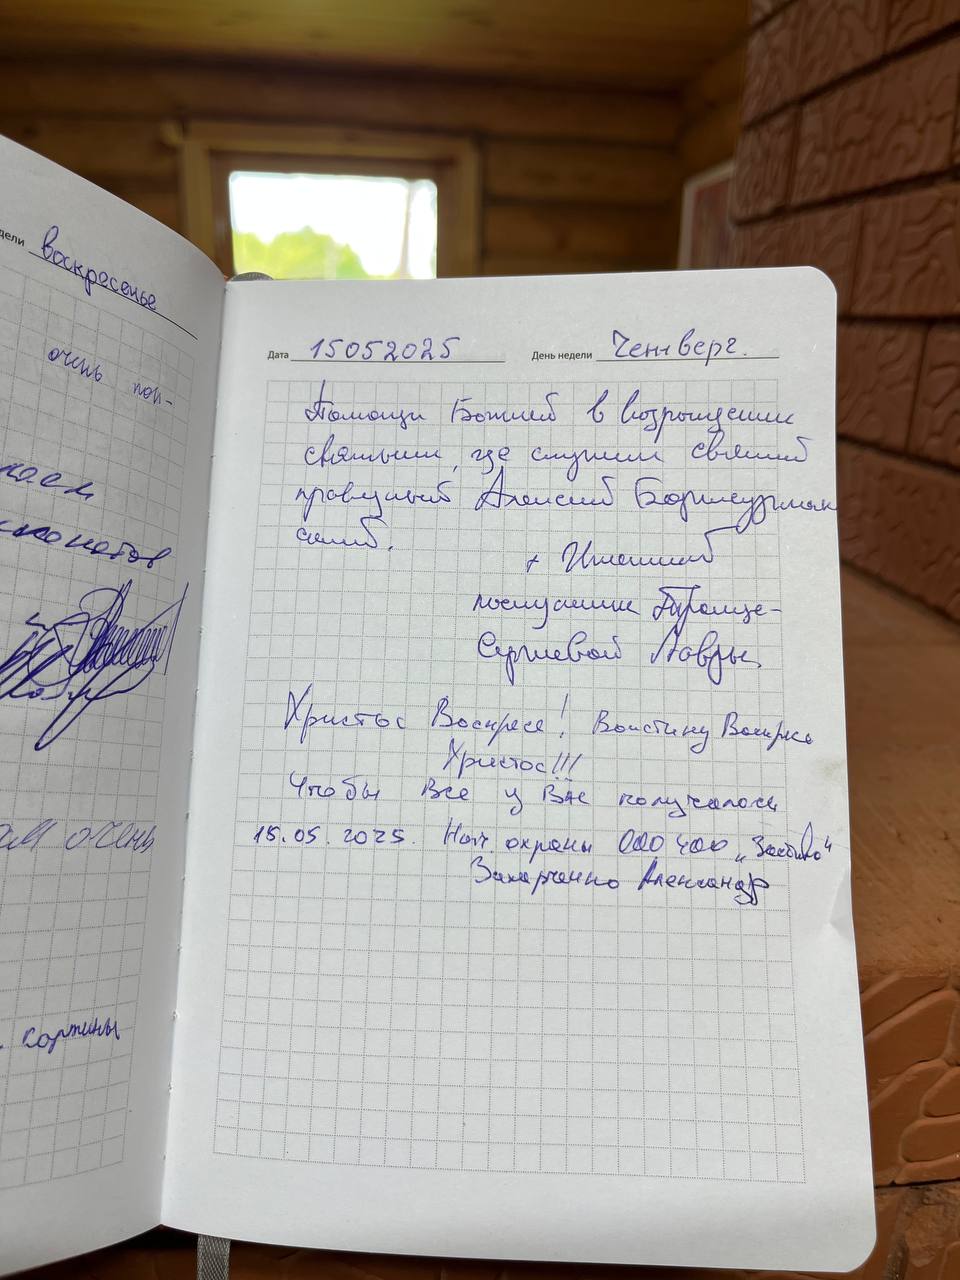 дели воскресенье
очень пон-
очень
картины
Дата 15052025 День недели Четверг.
Помощи Божией в возрождении
святыни, где служил святой
праведный Алексий Бортсурман
ский.
+ Игумен
Троице-
Сергиевой Лавры
Христос Воскресе! Воистину Воскресе
Христос!!!
Чтобы Все у Вас получалось
15.05.2025. Нач. охраны ООО ЧОО
Захарченко Александр